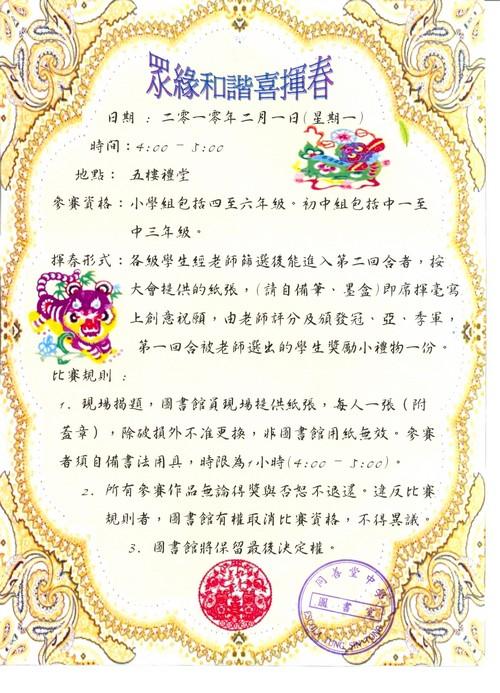 眾緣和諧喜揮春
日期 : 二零一零年二月一日(星期一)
時間：4:00 - 5:00
地點： 五樓禮堂
參賽資格：小學組包括四至六年級。初中組包括中一至
中三年級。
揮春形式：各級學生經老師篩選後能進入第二回合者，按
大會提供的紙張，(請自備筆、墨盒)即席揮毫寫
上創意祝願，由老師評分及頒發冠、亞、季軍，
第一回合被老師選出的學生獎勵小禮物一份。
比賽規則 :
1. 現場揭題，圖書館員現場提供紙張，每人一張（附
蓋章），除破損外不准更換，非圖書館用紙無效。參賽
者須自備書法用具，時限為1小時(4:00 - 5:00)。
2. 所有參賽作品無論得獎與否恕不退還。違反比賽
規則者，圖書館有權取消比賽資格，不得異議。
3. 圖書館將保留最後決定權。
同善堂中學
圖書室